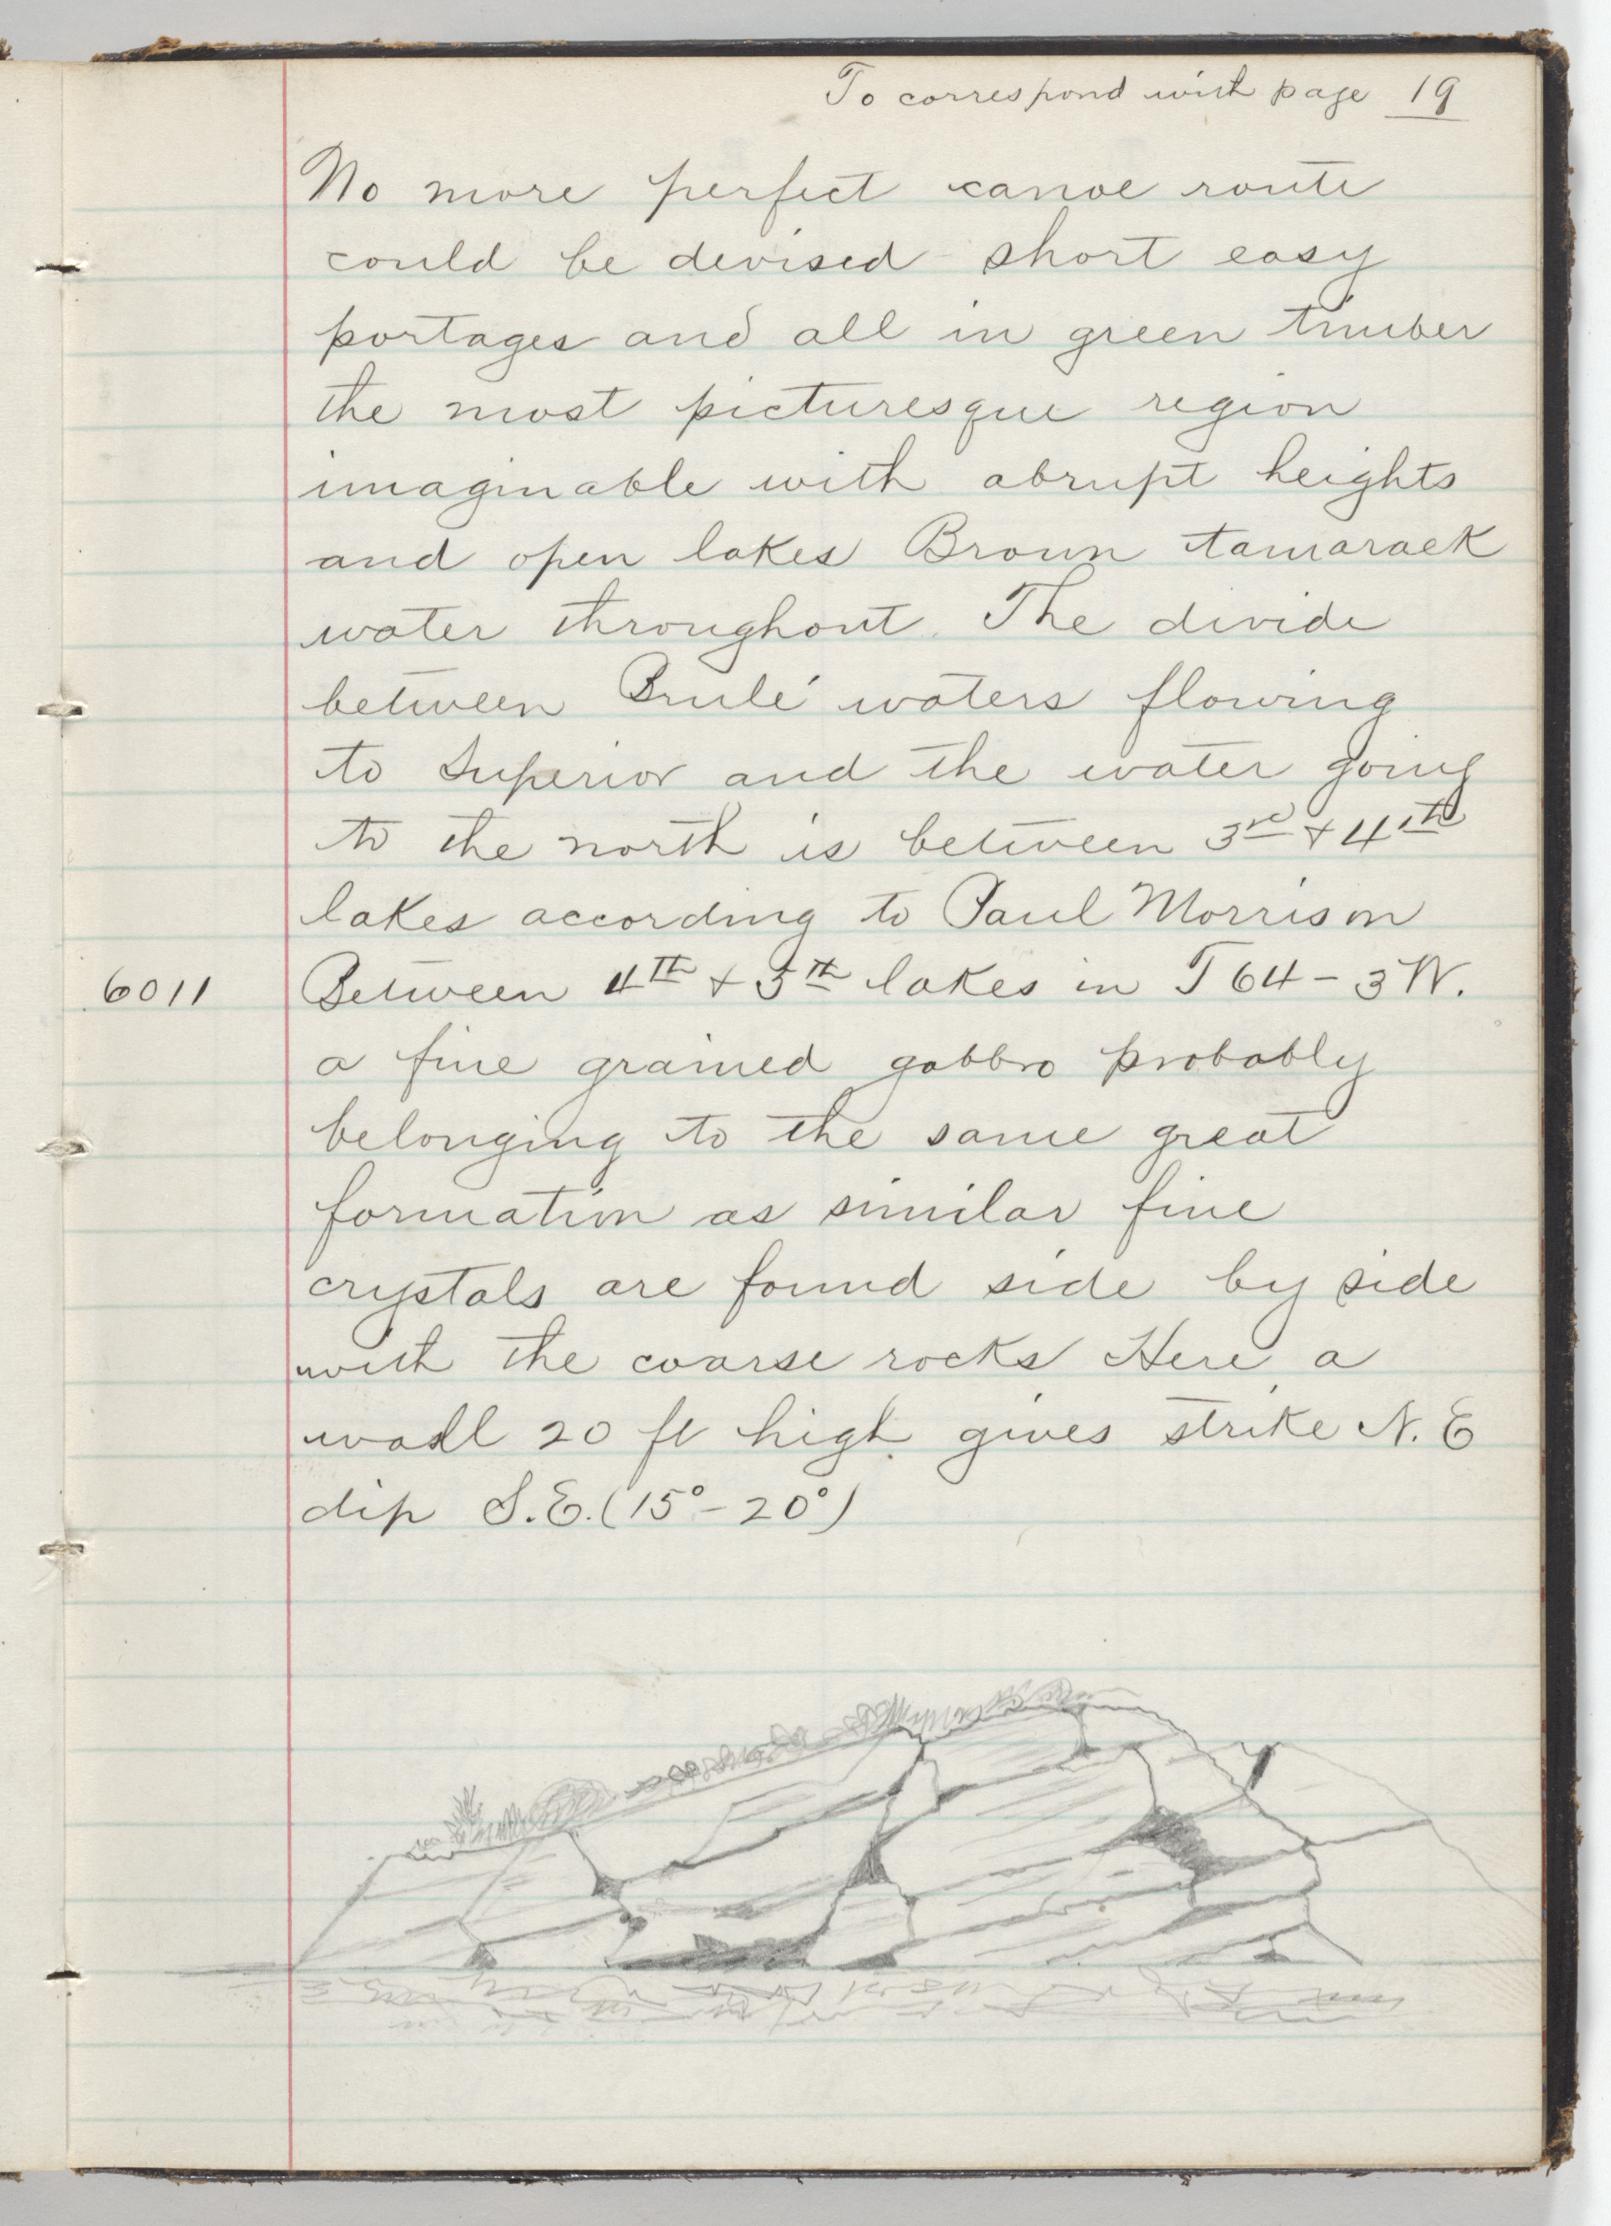 To correspond with page 19
No more perfect canoe route
could be devised short easy
portages and all in green timber
the most picturesque region
imaginable with abrupt heights
and open lakes Brown tamarack
water throughout. The divide
between Brulé waters flowing
to Superior and the water going
to the north is between 3rd + 4th
lakes according to Paul Morrison
6011 Between 4th + 5th lakes in T 64 - 3 W.
a fine grained gabbro probably
belonging to the same great
formation as similar fine
crystals are found side by side
with the coarse rocks Here a
wall 20 ft high gives strike N. E
dip S.E. (15° - 20°)